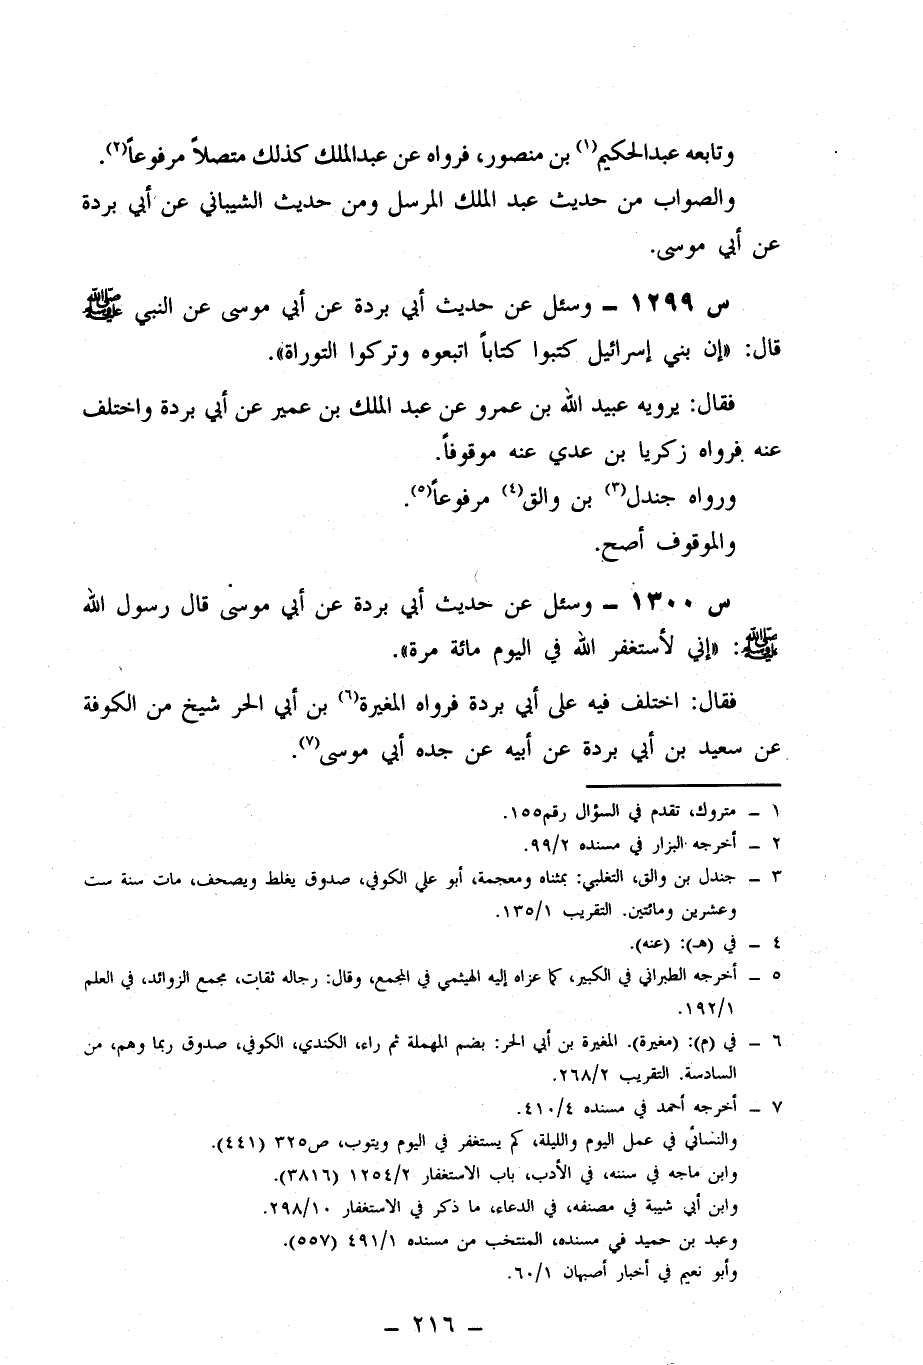 وتابعه عبدالحكيم(١) بن منصور، فرواه عن عبدالملك كذلك متصلاً مرفوعاً(٢).
والصواب من حديث عبد الملك المرسل ومن حديث الشيباني عن أبي بردة
عن أبي موسى.
س ١٢٩٩ – وسئل عن حديث أبي بردة عن أبي موسى عن النبي ﷺ
قال: «إن بني إسرائيل كتبوا كتاباً اتبعوه وتركوا التوراة».
فقال: يرويه عبيد الله بن عمرو عن عبد الملك بن عمير عن أبي بردة واختلف
عنه فرواه زكريا بن عدي عنه موقوفاً.
ورواه جندل(٣) بن والق(٤) مرفوعاً(٥).
والموقوف أصح.
س ١٣٠٠ – وسئل عن حديث أبي بردة عن أبي موسى قال رسول الله
ﷺ: «إني لأستغفر الله في اليوم مائة مرة».
فقال: اختلف فيه على أبي بردة فرواه المغيرة(٦) بن أبي الحر شيخ من الكوفة
عن سعيد بن أبي بردة عن أبيه عن جده أبي موسى(٧).
١ – متروك، تقدم في السؤال رقم١٥٥.
٢ – أخرجه البزار في مسنده ٩٩/٢.
٣ – جندل بن والق، التغلبي: بمثناه ومعجمة، أبو علي الكوفي، صدوق يغلط ويصحف، مات سنة ست
وعشرين ومائتين. التقريب ١٣٥/١.
٤ – في (هـ): (عنه).
٥ – أخرجه الطبراني في الكبير، كما عزاه إليه الهيثمي في المجمع، وقال: رجاله ثقات، مجمع الزوائد، في العلم
١٩٢/١.
٦ – في (م): (مغيرة). المغيرة بن أبي الحر: بضم المهملة ثم راء، الكندي، الكوفي، صدوق ربما وهم، من
السادسة. التقريب ٢٦٨/٢.
٧ – أخرجه أحمد في مسنده ٤١٠/٤.
والنسائي في عمل اليوم والليلة، كم يستغفر في اليوم ويتوب، ص٣٢٥ (٤٤١).
وابن ماجه في سننه، في الأدب، باب الاستغفار ١٢٥٤/٢ (٣٨١٦).
وابن أبي شيبة في مصنفه، في الدعاء، ما ذكر في الاستغفار ٢٩٨/١٠.
وعبد بن حميد في مسنده، المنتخب من مسنده ٤٩١/١ (٥٥٧).
وأبو نعيم في أخبار أصبهان ٦٠/١.
– ٢١٦ –